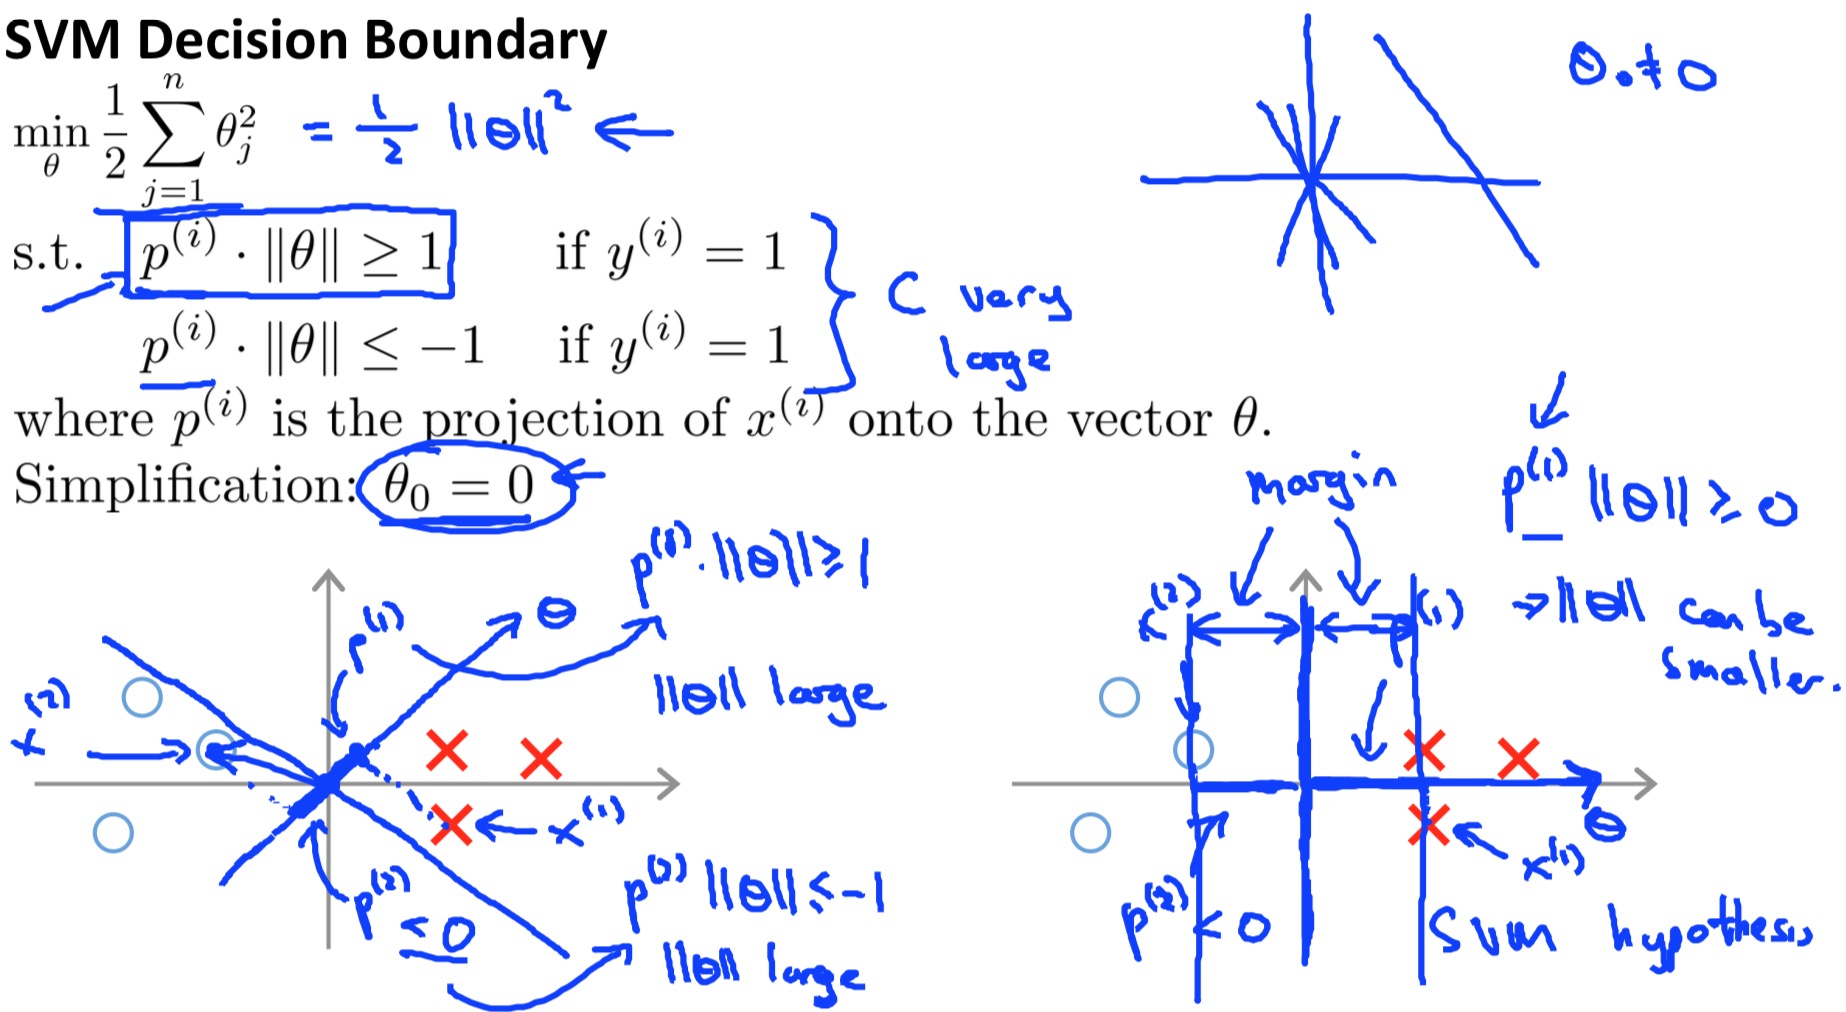 SVM Decision Boundary
min_θ 1/2 ∑_{j=1}^{n} θ_j^2 = 1/2 ||θ||^2 ←
s.t. p^(i) · ‖θ‖ ≥ 1 if y^(i) = 1
p^(i) · ‖θ‖ ≤ −1 if y^(i) = 1
C very
large
θ₀ ≠ 0
where p^(i) is the projection of x^(i) onto the vector θ.
Simplification: θ₀ = 0
p^(1) · ||θ|| ≥ 1
||θ|| large
p^(1)
θ
x^(2)
x^(1)
p^(2) < 0
p^(2) ||θ|| ≤ -1
||θ|| large
margin
p^(1) ||θ|| ≥ 0
⇒ ||θ|| can be
smaller.
x^(2)
p^(1)
θ
x^(1)
p^(2) < 0
SVM hypothesis